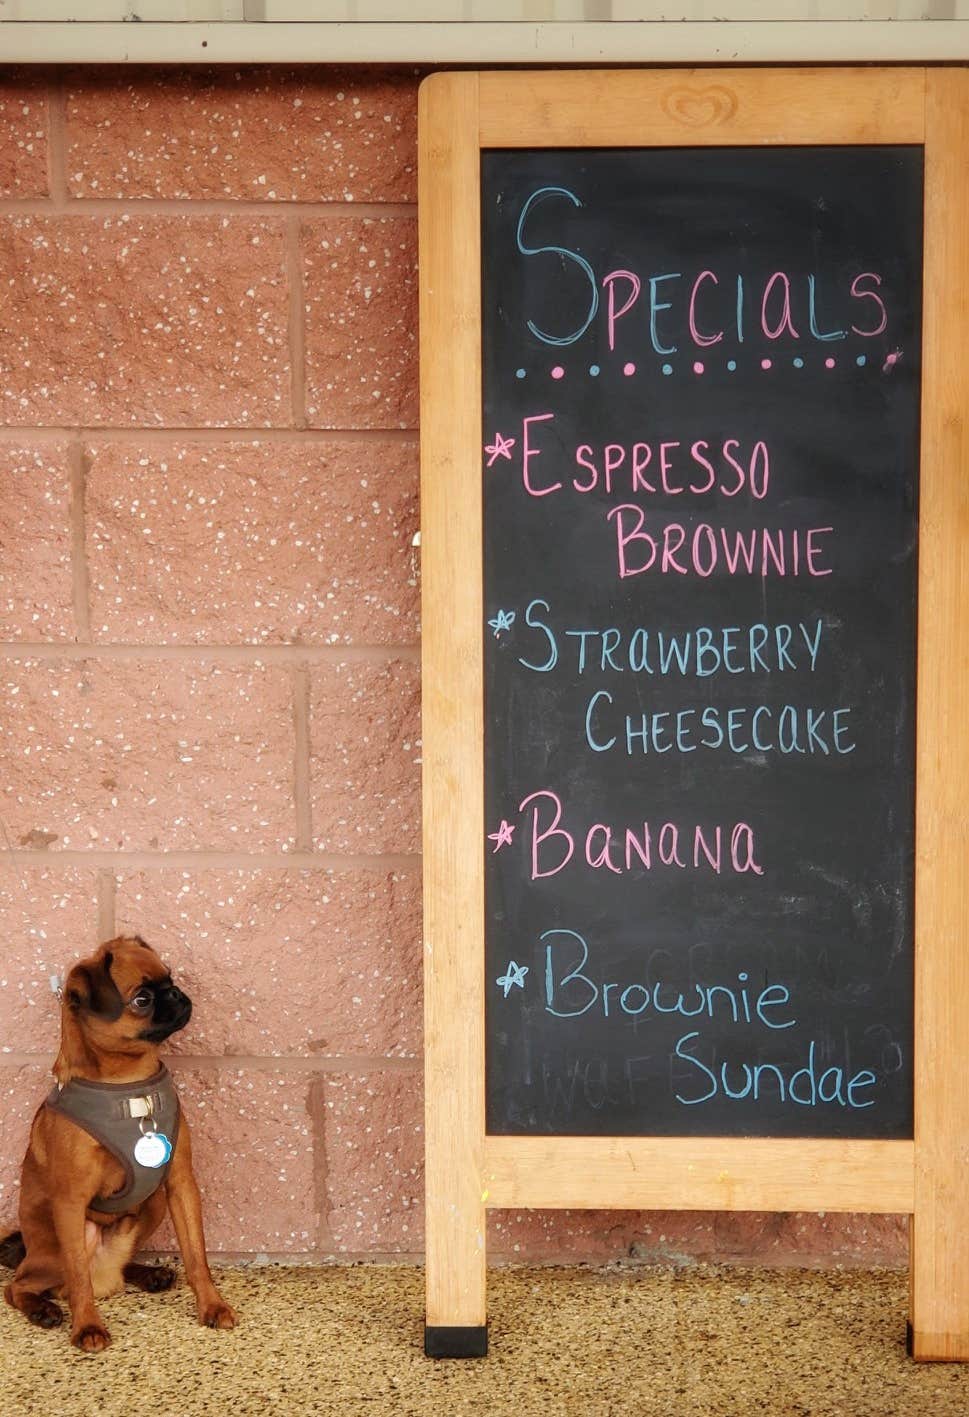 SPECIALS
* ESPRESSO
BROWNIE
* STRAWBERRY
CHEESECAKE
* BANANA
* Brownie
Sundae